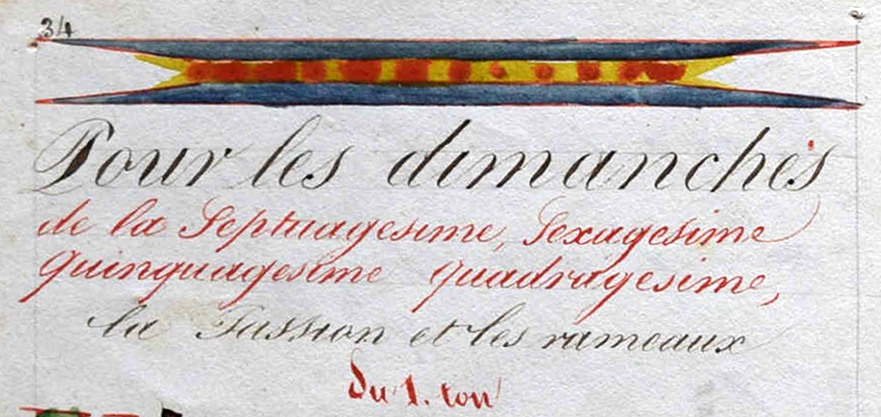 34
Pour les dimanches
de la Septuagesime, Sexagesime
quinquagesime quadragesime,
la Passion et les rameaux
Du 1. ton